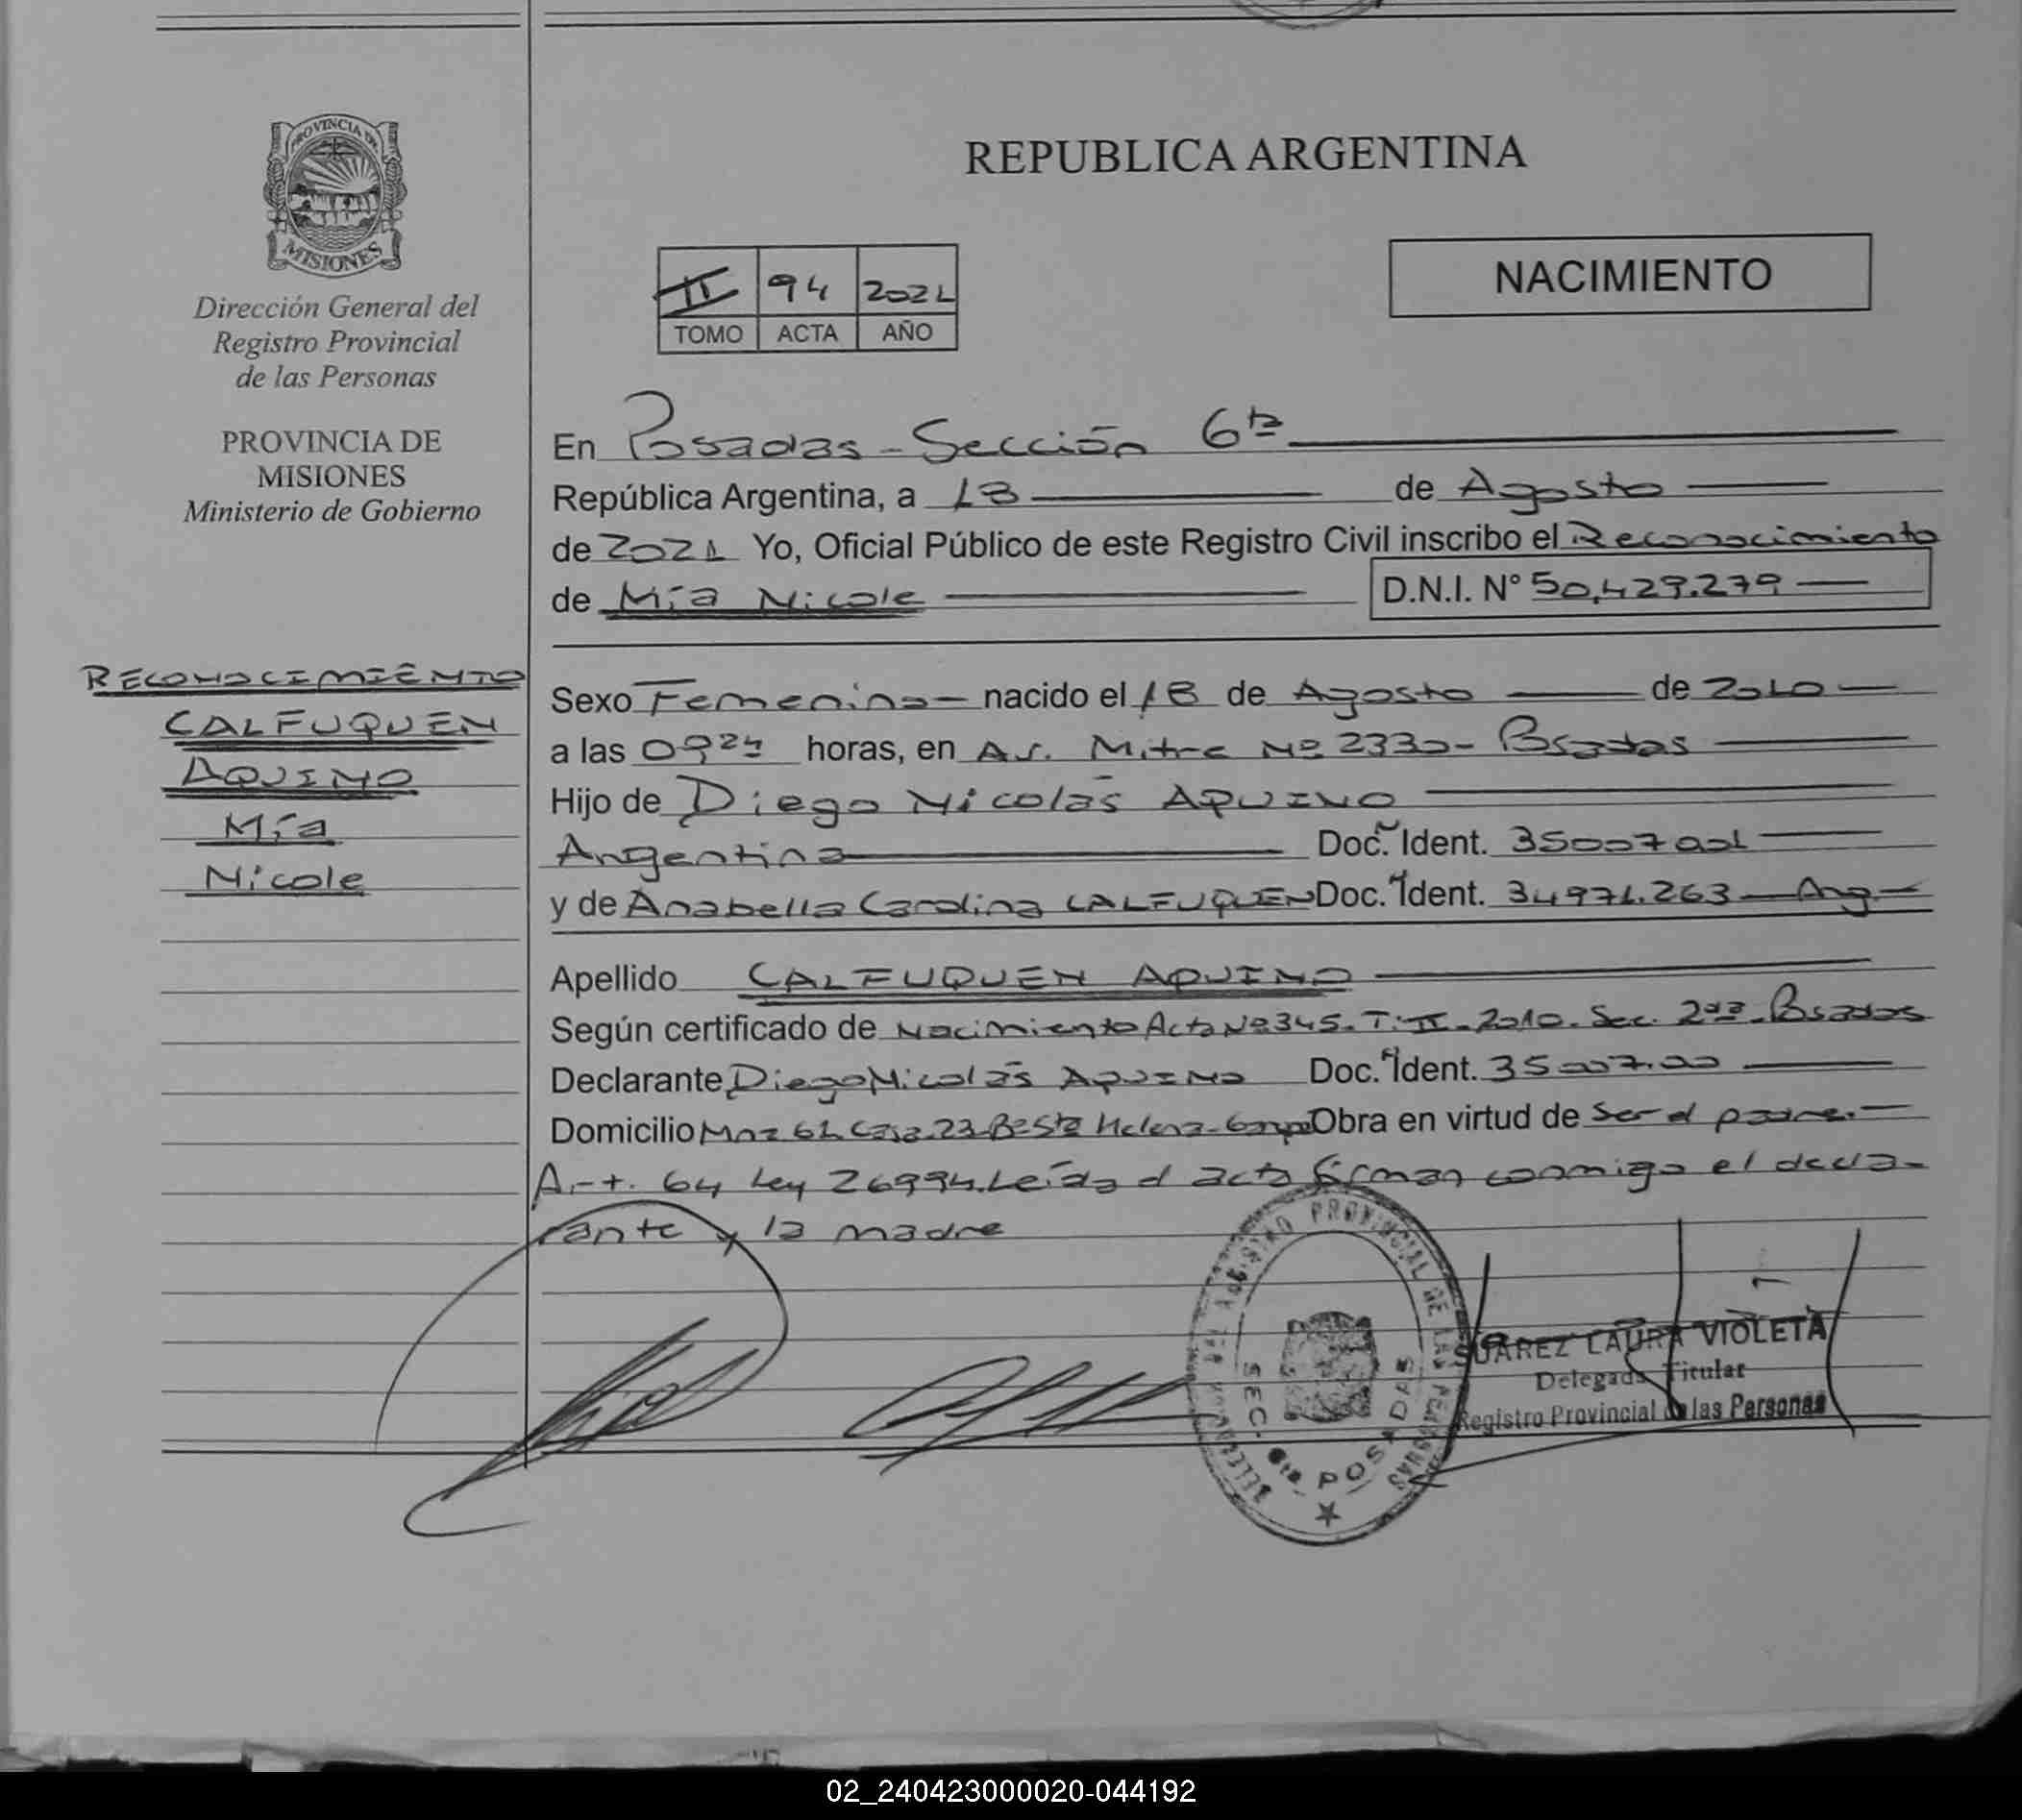 PROVINCIA DE
MISIONES
Dirección General del
Registro Provincial
de las Personas
PROVINCIA DE
MISIONES
Ministerio de Gobierno
RECONOCIMIENTO
CALFUQUEN
AQUINO
Mía
Nicole
REPUBLICA ARGENTINA
II 94 2021
TOMO ACTA AÑO
NACIMIENTO
En Posadas - Sección 6ta
República Argentina, a 18 de Agosto
de 2021 Yo, Oficial Público de este Registro Civil inscribo el Reconocimiento
de Mía Nicole D.N.I. N° 50.429.279
Sexo Femenino nacido el 18 de Agosto de 2010
a las 09 24 horas, en Av. Mitre Nº 2330 - Posadas
Hijo de Diego Nicolás AQUINO
Argentina Doc. Ident. 35007001
y de Anabella Carolina CALFUQUEN Doc. Ident. 34971.263 - Arg -
Apellido CALFUQUEN AQUINO
Según certificado de Nacimiento Acta Nº 345. T: II - 2010. Sec. 2da - Posadas
Declarante Diego Nicolás AQUINO Doc. Ident.
Domicilio Casa 23 Bº Sta Helena Obra en virtud de ser el padre. -
Art. 64 Ley 26994. Leída el acta firman conmigo el decla-
rante y la madre
REGISTRO PROVINCIAL DE LAS PERSONAS
SEC. 6ta POSADAS
SUAREZ LAURA VIOLETA
Delegada Titular
Registro Provincial de las Personas
02_240423000020-044192